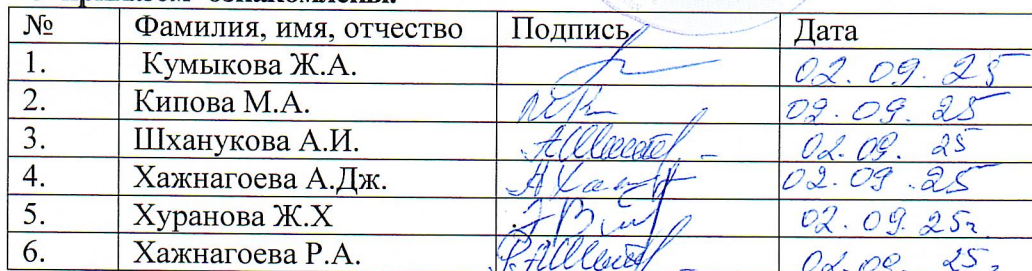 ознакомлены.
№ Фамилия, имя, отчество Подпись Дата
1. Кумыкова Ж.А. 02.09.25
2. Кипова М.А. 02.09.25
3. Шханукова А.И. 02.09.25
4. Хажнагоева А.Дж. 02.09.25
5. Хуранова Ж.Х 02.09.25г
6. Хажнагоева Р.А. 02.09.25г